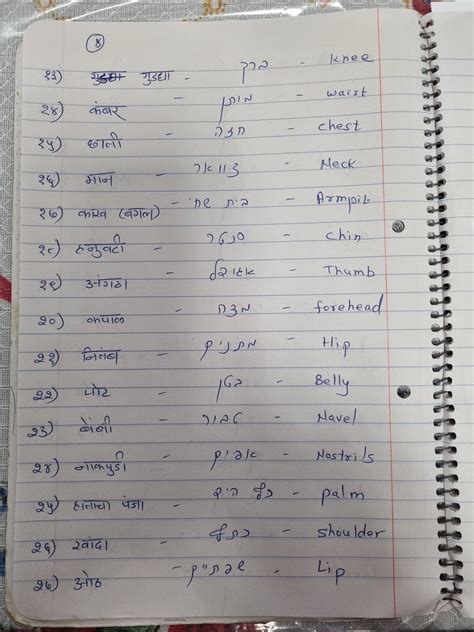 ४
१३) गुडघा गुडघ्या - ברך - knee
१४) कंबर - מותן - waist
१५) छाती - חזה - chest
१६) मान - צוואר - Neck
१७) काख (बगल) - בית שחי - Armpit
१८) हनुवटी - סנטר - chin
१९) अंगठा - אגודל - Thumb
२०) कपाळ - מצח - forehead
२१) नितंब - מתניים - Hip
२२) पोट - בטן - Belly
२३) बेंबी - טבור - Navel
२४) नाकपुडी - - Nostrils
२५) हाताचा पंजा - כף היד - palm
२६) खांदा - כתף - shoulder
२७) ओठ - שפתיים - Lip